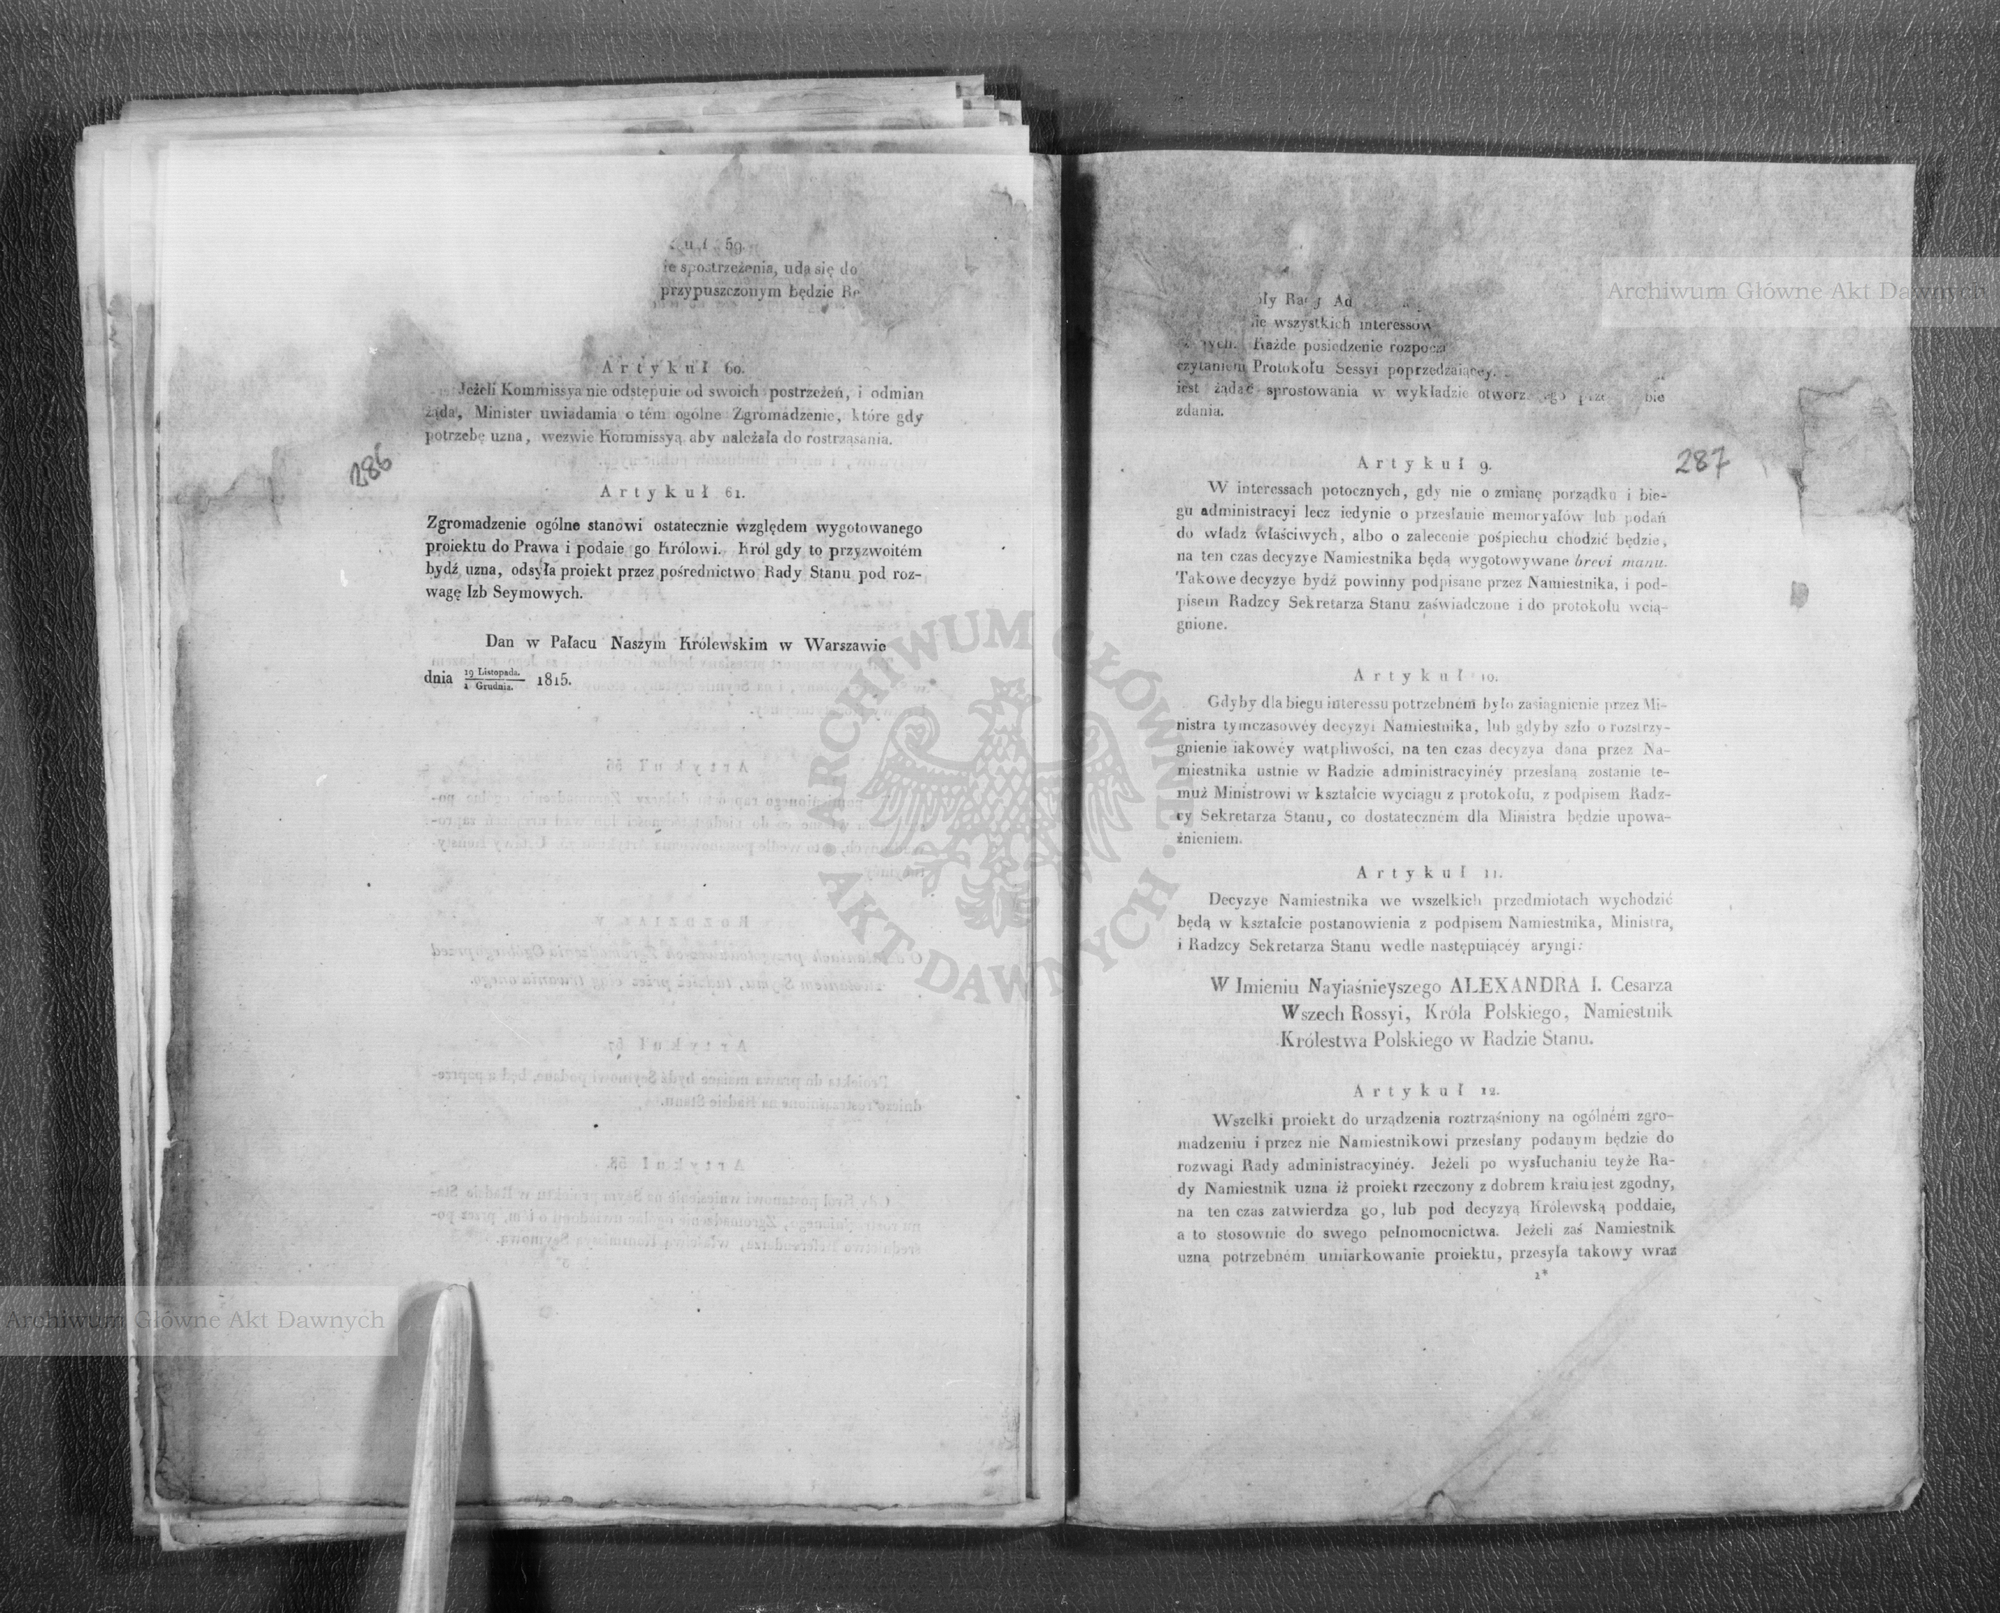 59.
spostrzeżenia, uda się do
przypuszczonym będzie
Artykuł 60.
Jeżeli Kommissya nie odstępuie od swoich postrzeżeń, i odmian
żąda, Minister uwiadamia o tém ogólne Zgromadzenie, które gdy
potrzebę uzna, wezwie Kommissyą aby należała do rostrząsania.
286
Artykuł 61.
Zgromadzenie ogólne stanowi ostatecznie względem wygotowanego
proiektu do Prawa i podaie go Królowi. Król gdy to przyzwoitém
bydź uzna, odsyła proiekt przez pośrednictwo Rady Stanu pod roz-
wagę Izb Seymowych.
Dan w Pałacu Naszym Królewskim w Warszawie
dnia 19 Listopada. / 1 Grudnia. 1815.
wszystkich interessow
Każde posiedzenie
czytaniem Protokołu Sessyi poprzedzaiącey.
iest żądać sprostowania w wykładzie
zdania.
287
Artykuł 9.
W interessach potocznych, gdy nie o zmianę porządku i bie-
gu administracyi lecz iedynie o przesłanie memoryałów lub podań
do władz właściwych, albo o zalecenie pośpiechu chodzić będzie,
na ten czas decyzye Namiestnika będą wygotowywane brevi manu.
Takowe decyzye bydź powinny podpisane przez Namiestnika, i pod-
pisem Radzcy Sekretarza Stanu zaświadczone i do protokołu wcią-
gnione.
Artykuł 10.
Gdyby dla biegu interessu potrzebném było zasiągnienie przez Mi-
nistra tymczasowéy decyzyi Namiestnika, lub gdyby szło o rozstrzy-
gnienie iakowéy wątpliwości, na ten czas decyzya dana przez Na-
miestnika ustnie w Radzie administracyinéy przesłaną zostanie te-
muż Ministrowi w kształcie wyciągu z protokołu, z podpisem Radz-
cy Sekretarza Stanu, co dostateczném dla Ministra będzie upowa-
żnieniem.
Artykuł 11.
Decyzye Namiestnika we wszelkich przedmiotach wychodzić
będą w kształcie postanowienia z podpisem Namiestnika, Ministra,
i Radzcy Sekretarza Stanu wedle następuiącéy aryngi:
W Imieniu Nayiaśnieyszego ALEXANDRA I. Cesarza
Wszech Rossyi, Króla Polskiego, Namiestnik
Królestwa Polskiego w Radzie Stanu.
Artykuł 12.
Wszelki proiekt do urządzenia roztrząśniony na ogólném zgro-
madzeniu i przez nie Namiestnikowi przesłany podanym będzie do
rozwagi Rady administracyinéy. Jeżeli po wysłuchaniu teyże Ra-
dy Namiestnik uzna iż proiekt rzeczony z dobrem kraiu jest zgodny,
na ten czas zatwierdza go, lub pod decyzyą Królewską poddaie,
a to stosownie do swego pełnomocnictwa. Jeżeli zaś Namiestnik
uzna potrzebném umiarkowanie proiektu, przesyła takowy wraz
2*
Archiwum Główne Akt Dawnych
Archiwum Główne Akt Dawnych
ARCHIWUM GŁÓWNE
AKT DAWNYCH